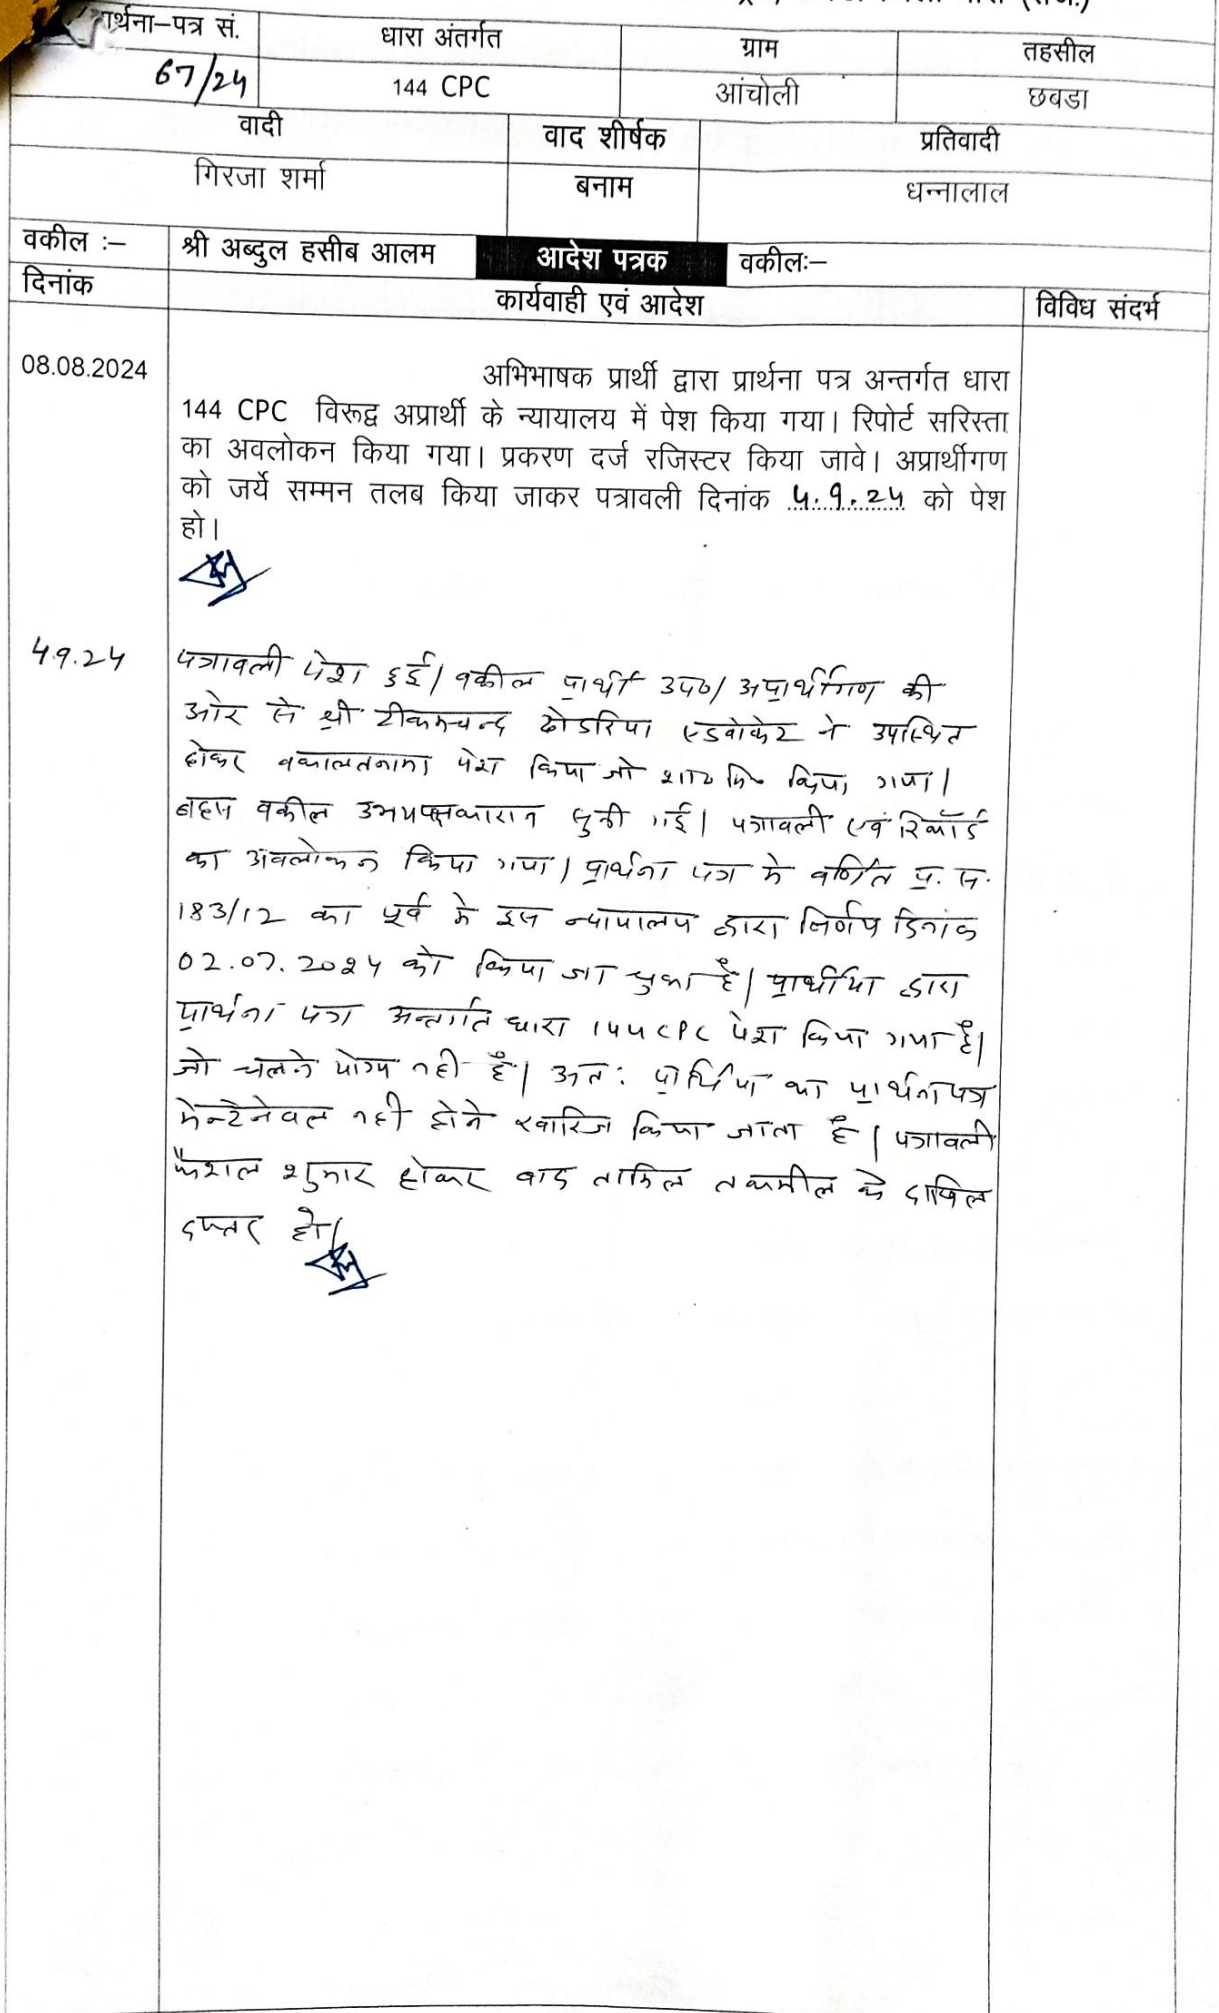 र्थना–पत्र सं. धारा अंतर्गत ग्राम तहसील
67/24 144 CPC आंचोली छबडा
वादी वाद शीर्षक प्रतिवादी
गिरजा शर्मा बनाम धन्नालाल
वकील :– श्री अब्दुल हसीब आलम आदेश पत्रक वकीलः–
दिनांक कार्यवाही एवं आदेश विविध संदर्भ
08.08.2024 अभिभाषक प्रार्थी द्वारा प्रार्थना पत्र अन्तर्गत धारा
144 CPC विरूद्व अप्रार्थी के न्यायालय में पेश किया गया। रिपोर्ट सरिस्ता
का अवलोकन किया गया। प्रकरण दर्ज रजिस्टर किया जावे। अप्रार्थीगण
को जर्ये सम्मन तलब किया जाकर पत्रावली दिनांक 4.9.24 को पेश
हो।
4.9.24 पत्रावली पेश हुई। वकील प्रार्थी उप०। अप्रार्थीगण की
ओर से श्री टीकमचन्द एडवोकेट ने उपस्थित
होकर वकालतनामा पेश किया जो शामिल किया गया।
बहस वकील उभयपक्षकारान सुनी गई। पत्रावली एवं रिकॉर्ड
का अवलोकन किया गया। प्रार्थना पत्र मे वर्णित प्र. स.
183/12 का पूर्व मे इस न्यायालय द्वारा निर्णय दिनांक
02.07.2024 को किया जा चुका है। प्रार्थीया द्वारा
प्रार्थना पत्र अन्तर्गत धारा 144 CPC पेश किया गया है।
जो चलने योग्य नही है। अत: प्रार्थिया का प्रार्थना पत्र
मेन्टेनेवल नही होने खारिज किया जाता है। पत्रावली
फैशल शुमार होकर बाद तामिल तकमील के दाखिल
दफ्तर हो।